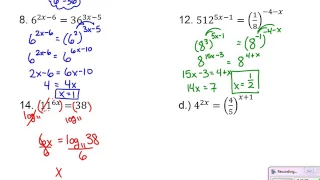 6=36
8. 6^{2x-6} = 36^{3x-5}
6^{2x-6} = (6^2)^{(3x-5)}
6^{2x-6} = 6^{6x-10}
2x-6 = 6x-10
4 = 4x
x=1
12. 512^{5x-1} = (1/8)^{-4-x}
(8^3)^{5x-1} = (8^{-1})^{-4-x}
8^{15x-3} = 8^{4+x}
15x-3 = 4+x
14x = 7
x = 1/2
14. (11^{6x}) = (38)
log_{11} log_{11}
6x/6 = log_{11}38/6
x
d.) 4^{2x} = (4/5)^{x+1}
Recording...